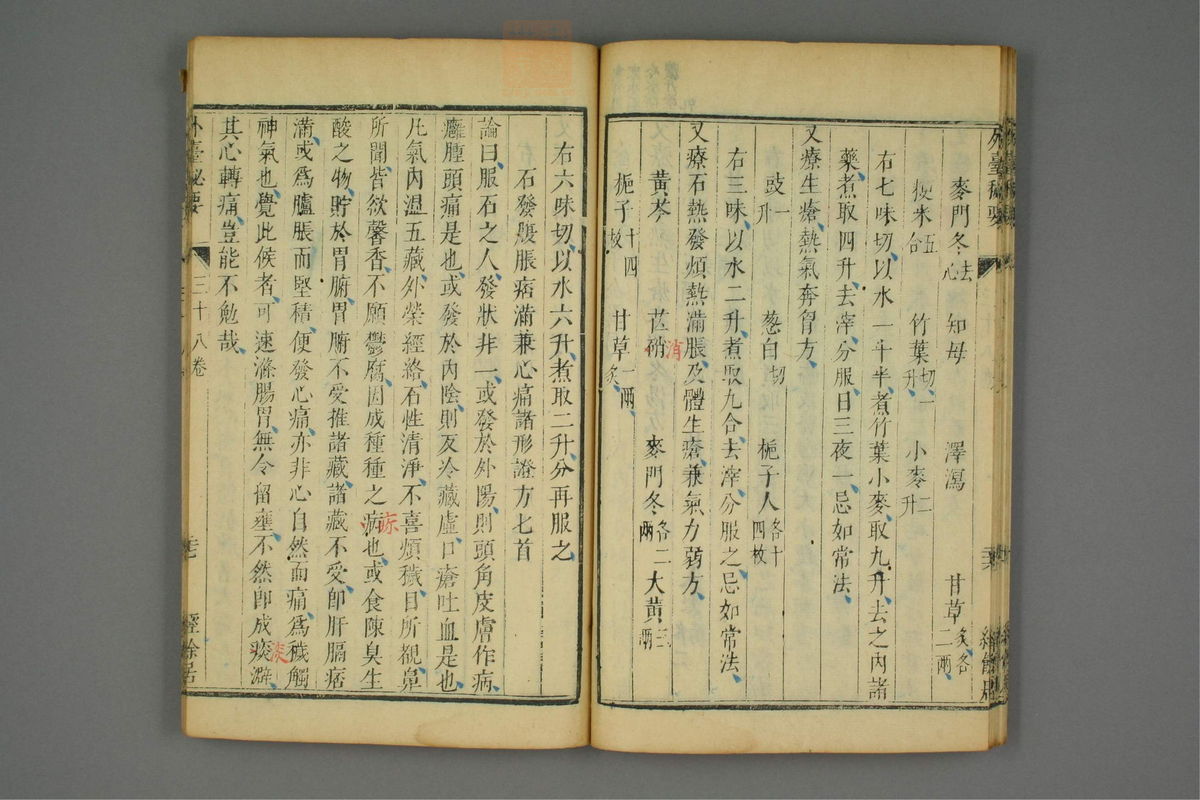 外臺秘要
麥門冬去心 知母 澤瀉 甘草炙各二兩
粳米五合 竹葉切一升 小麥二升
右七味切以水一斗半煮竹葉小麥取九升去之內諸
藥煮取四升去滓分服日三夜一忌如常法
又療生瘡熱氣奔胷方
豉一升 葱白切 梔子人各十四枚
右三味以水二升煮取九合去滓分服之忌如常法
又療石熱發煩熱滿脹及體生瘡兼氣力弱方
黃芩 芒硝 麥門冬各二兩 大黃三兩
消
梔子十四枚 甘草一兩炙
右六味切以水六升煮取二升分再服之
石發腹脹痞滿兼心痛諸形證方七首
論曰服石之人發狀非一或發於外陽則頭角皮膚作病
癰腫頭痛是也或發於內陰則反冷藏虛口瘡吐血是也
凡氣內溫五藏外榮經絡石性清淨不喜煩穢目所覩鼻
所聞皆欲馨香不願鬱腐因成種種之病也或食陳臭生
酸之物貯於胃腑胃腑不受推諸藏諸藏不受即肝膈痞
滿或爲臚脹而堅積便發心痛亦非心自然而痛爲穢觸
神氣也覺此候者可速滌腸胃無令留壅不然即成痰澼
其心轉痛豈能不勉哉
外臺秘要 三十八卷 經餘居